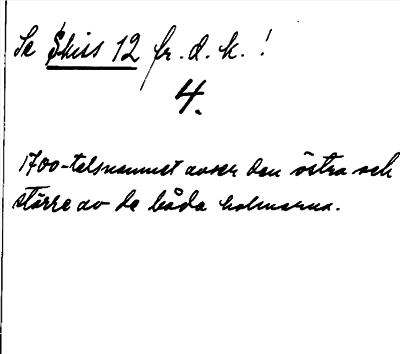 Se Skiss 12 fr. d. k. !
4.
1700-talsnamnet avser den östra och
större av de båda holmarna.